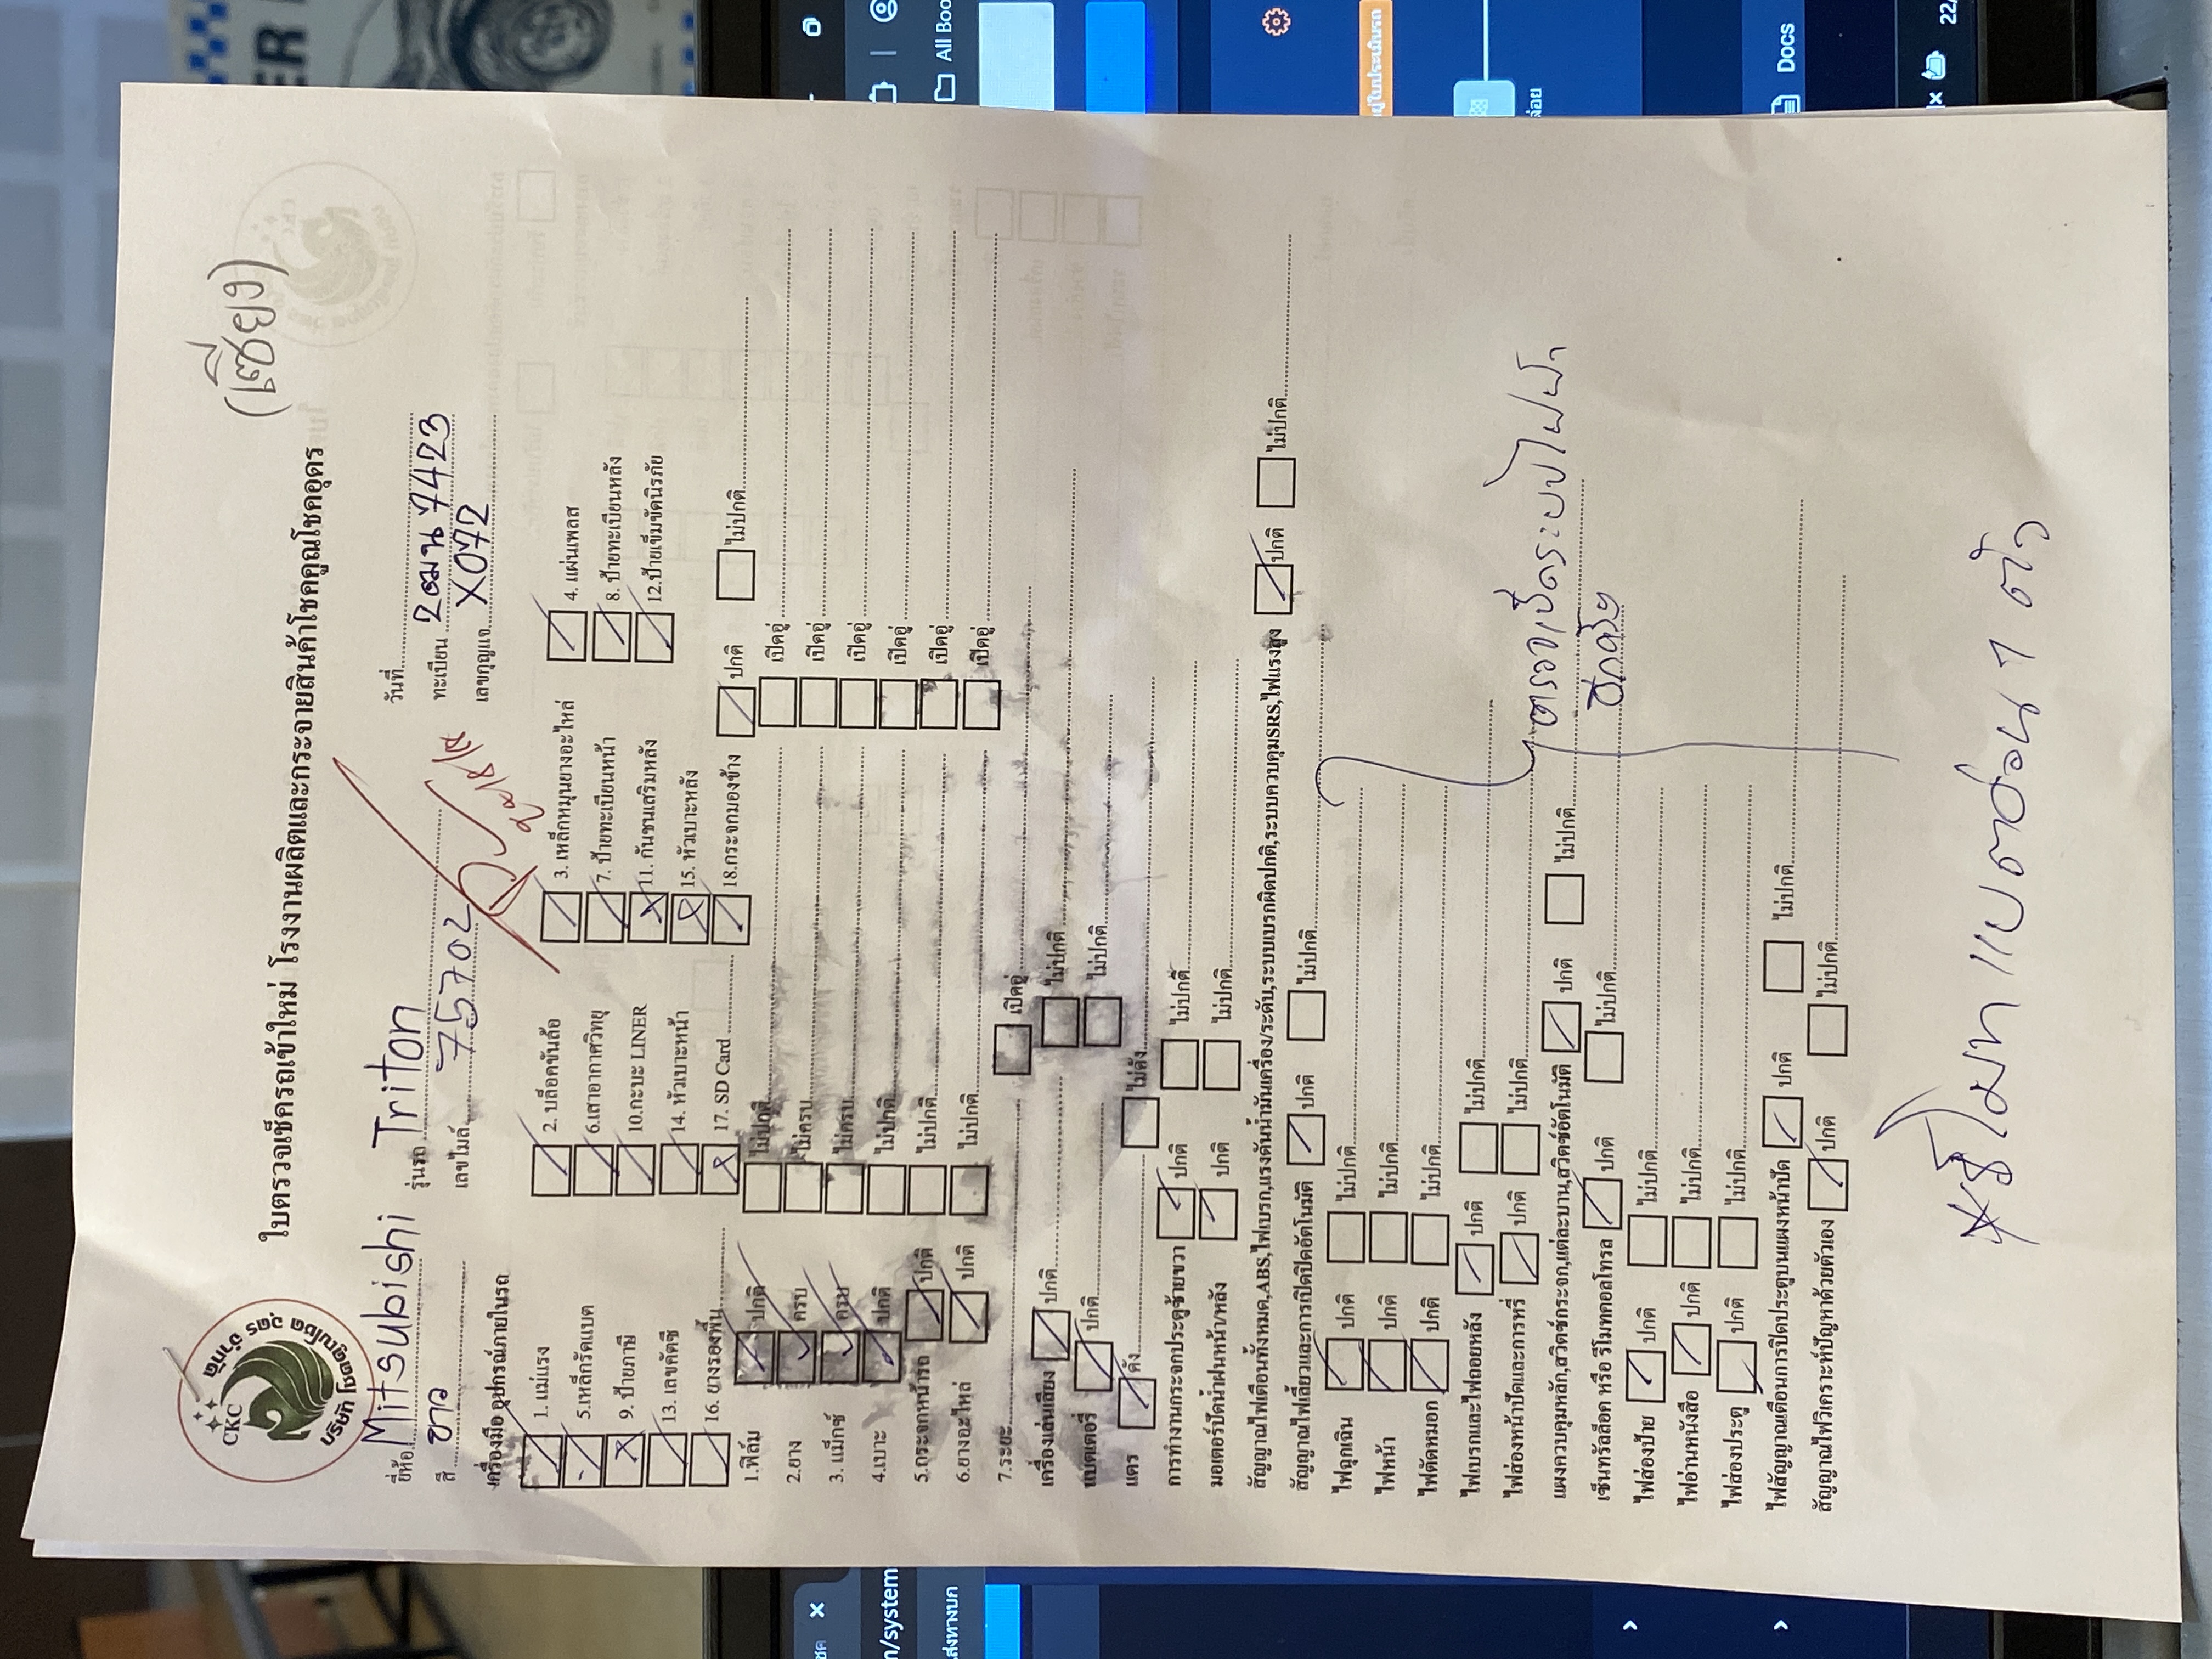 (เซียง)
CKC
บริษัท โชคคูณโชค อุดร จำกัด
ใบตรวจเช็ครถเข้าใหม่ โรงงานผลิตและกระจายสินค้าโชคคูณโชคอุดร
วันที่
ยี่ห้อ Mitsubishi รุ่นรถ Triton ทะเบียน 2ฒน 7423
สี ขาว เลขไมล์ 75702 เลขกุญแจ X072
เครื่องมือ อุปกรณ์ภายในรถ
1. แม่แรง 2. บล็อคขันล้อ 3. เหล็กหมุนยางอะไหล่ 4. แผ่นเพลส
5.เหล็กรัดแบต 6.เสาอากาศวิทยุ 7. ป้ายทะเบียนหน้า 8. ป้ายทะเบียนหลัง
9. ป้ายภาษี 10.กะบะ LINER 11. กันชนเสริมหลัง 12.ป้ายเข็มขัดนิรภัย
13. เลขคัตซี 14. หัวเบาะหน้า 15. หัวเบาะหลัง
16. ยางรองพื้น 17. SD Card 18.กระจกมองข้าง ปกติ ไม่ปกติ
1.ฟิล์ม ปกติ ไม่ปกติ เบิดอู่
2.ยาง ครบ ไม่ครบ เบิดอู่
3. แม็กซ์ ครบ ไม่ครบ เบิดอู่
4.เบาะ ปกติ ไม่ปกติ เบิดอู่
5.กระจกหน้ารถ ปกติ ไม่ปกติ เบิดอู่
6.ยางอะไหล่ ปกติ ไม่ปกติ เบิดอู่
7.ระยะ เบิดอู่
เครื่องเล่นเสียง ปกติ ไม่ปกติ
แบตเตอรี่ ปกติ ไม่ปกติ
แตร ดัง ไม่ดัง
การทำงานกระจกประตูซ้ายขวา ปกติ ไม่ปกติ
มอเตอร์ปัดน้ำฝนหน้า/หลัง ปกติ ไม่ปกติ
สัญญาณไฟเตือนทั้งหมด,ABS,ไฟเบรก,แรงดันน้ำมันเครื่อง/ระดับ,ระบบเบรกผิดปกติ,ระบบควบคุมSRS,ไฟแรงสูง ปกติ ไม่ปกติ
สัญญาณไฟเลี้ยวและการเปิดปิดอัตโนมัติ ปกติ ไม่ปกติ
ไฟฉุกเฉิน ปกติ ไม่ปกติ
ไฟหน้า ปกติ ไม่ปกติ
ไฟตัดหมอก ปกติ ไม่ปกติ
ไฟเบรกและไฟถอยหลัง ปกติ ไม่ปกติ
ไฟส่องหน้าปัดและการหรี่ ปกติ ไม่ปกติ
ตรวจเช็คระบบไฟฟ้า
อีกครั้ง
แผงควบคุมหลัก,สวิตช์กระจก,แต่ละบาน,สวิตช์อัตโนมัติ ปกติ ไม่ปกติ
เซ็นทรัลล็อค หรือ รีโมทคอลโทรล ปกติ ไม่ปกติ
ไฟส่องป้าย ปกติ ไม่ปกติ
ไฟอ่านหนังสือ ปกติ ไม่ปกติ
ไฟส่องประตู ปกติ ไม่ปกติ
ไฟสัญญาณเตือนการปิดประตูบนแผงหน้าปัด ปกติ ไม่ปกติ
สัญญาณไฟวิเคราะห์ปัญหาด้วยตัวเอง ปกติ ไม่ปกติ
*รีโมทแบตอ่อน 1 ตัว
All Boo
Docs
n/system